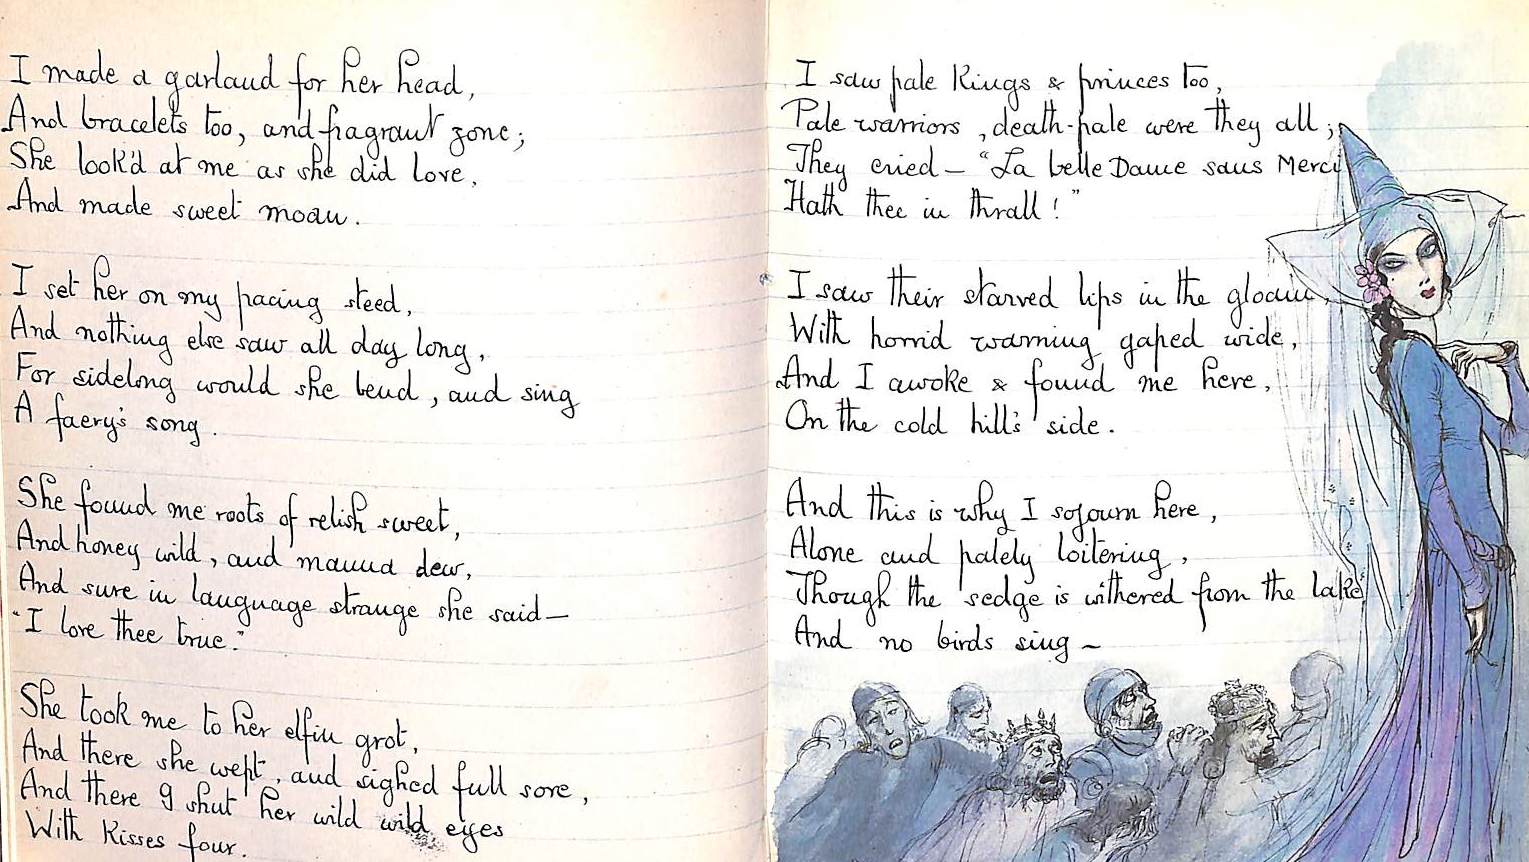 I made a garland for her head,
And bracelets too, and fragrant zone;
She look'd at me as she did love,
And made sweet moan.
I set her on my pacing steed,
And nothing else saw all day long,
For sidelong would she bend, and sing
A faery's song.
She found me roots of relish sweet,
And honey wild, and manna dew,
And sure in language strange she said—
"I love thee true."
She took me to her elfin grot,
And there she wept, and sighed full sore,
And there I shut her wild wild eyes
With kisses four.
I saw pale Kings & princes too,
Pale warriors, death-pale were they all;
They cried— "La belle Dame sans Merci
Hath thee in thrall!"
I saw their starved lips in the gloam,
With horrid warning gaped wide,
And I awoke & found me here,
On the cold hill's side.
And this is why I sojourn here,
Alone and palely loitering,
Though the sedge is withered from the lake
And no birds sing ~